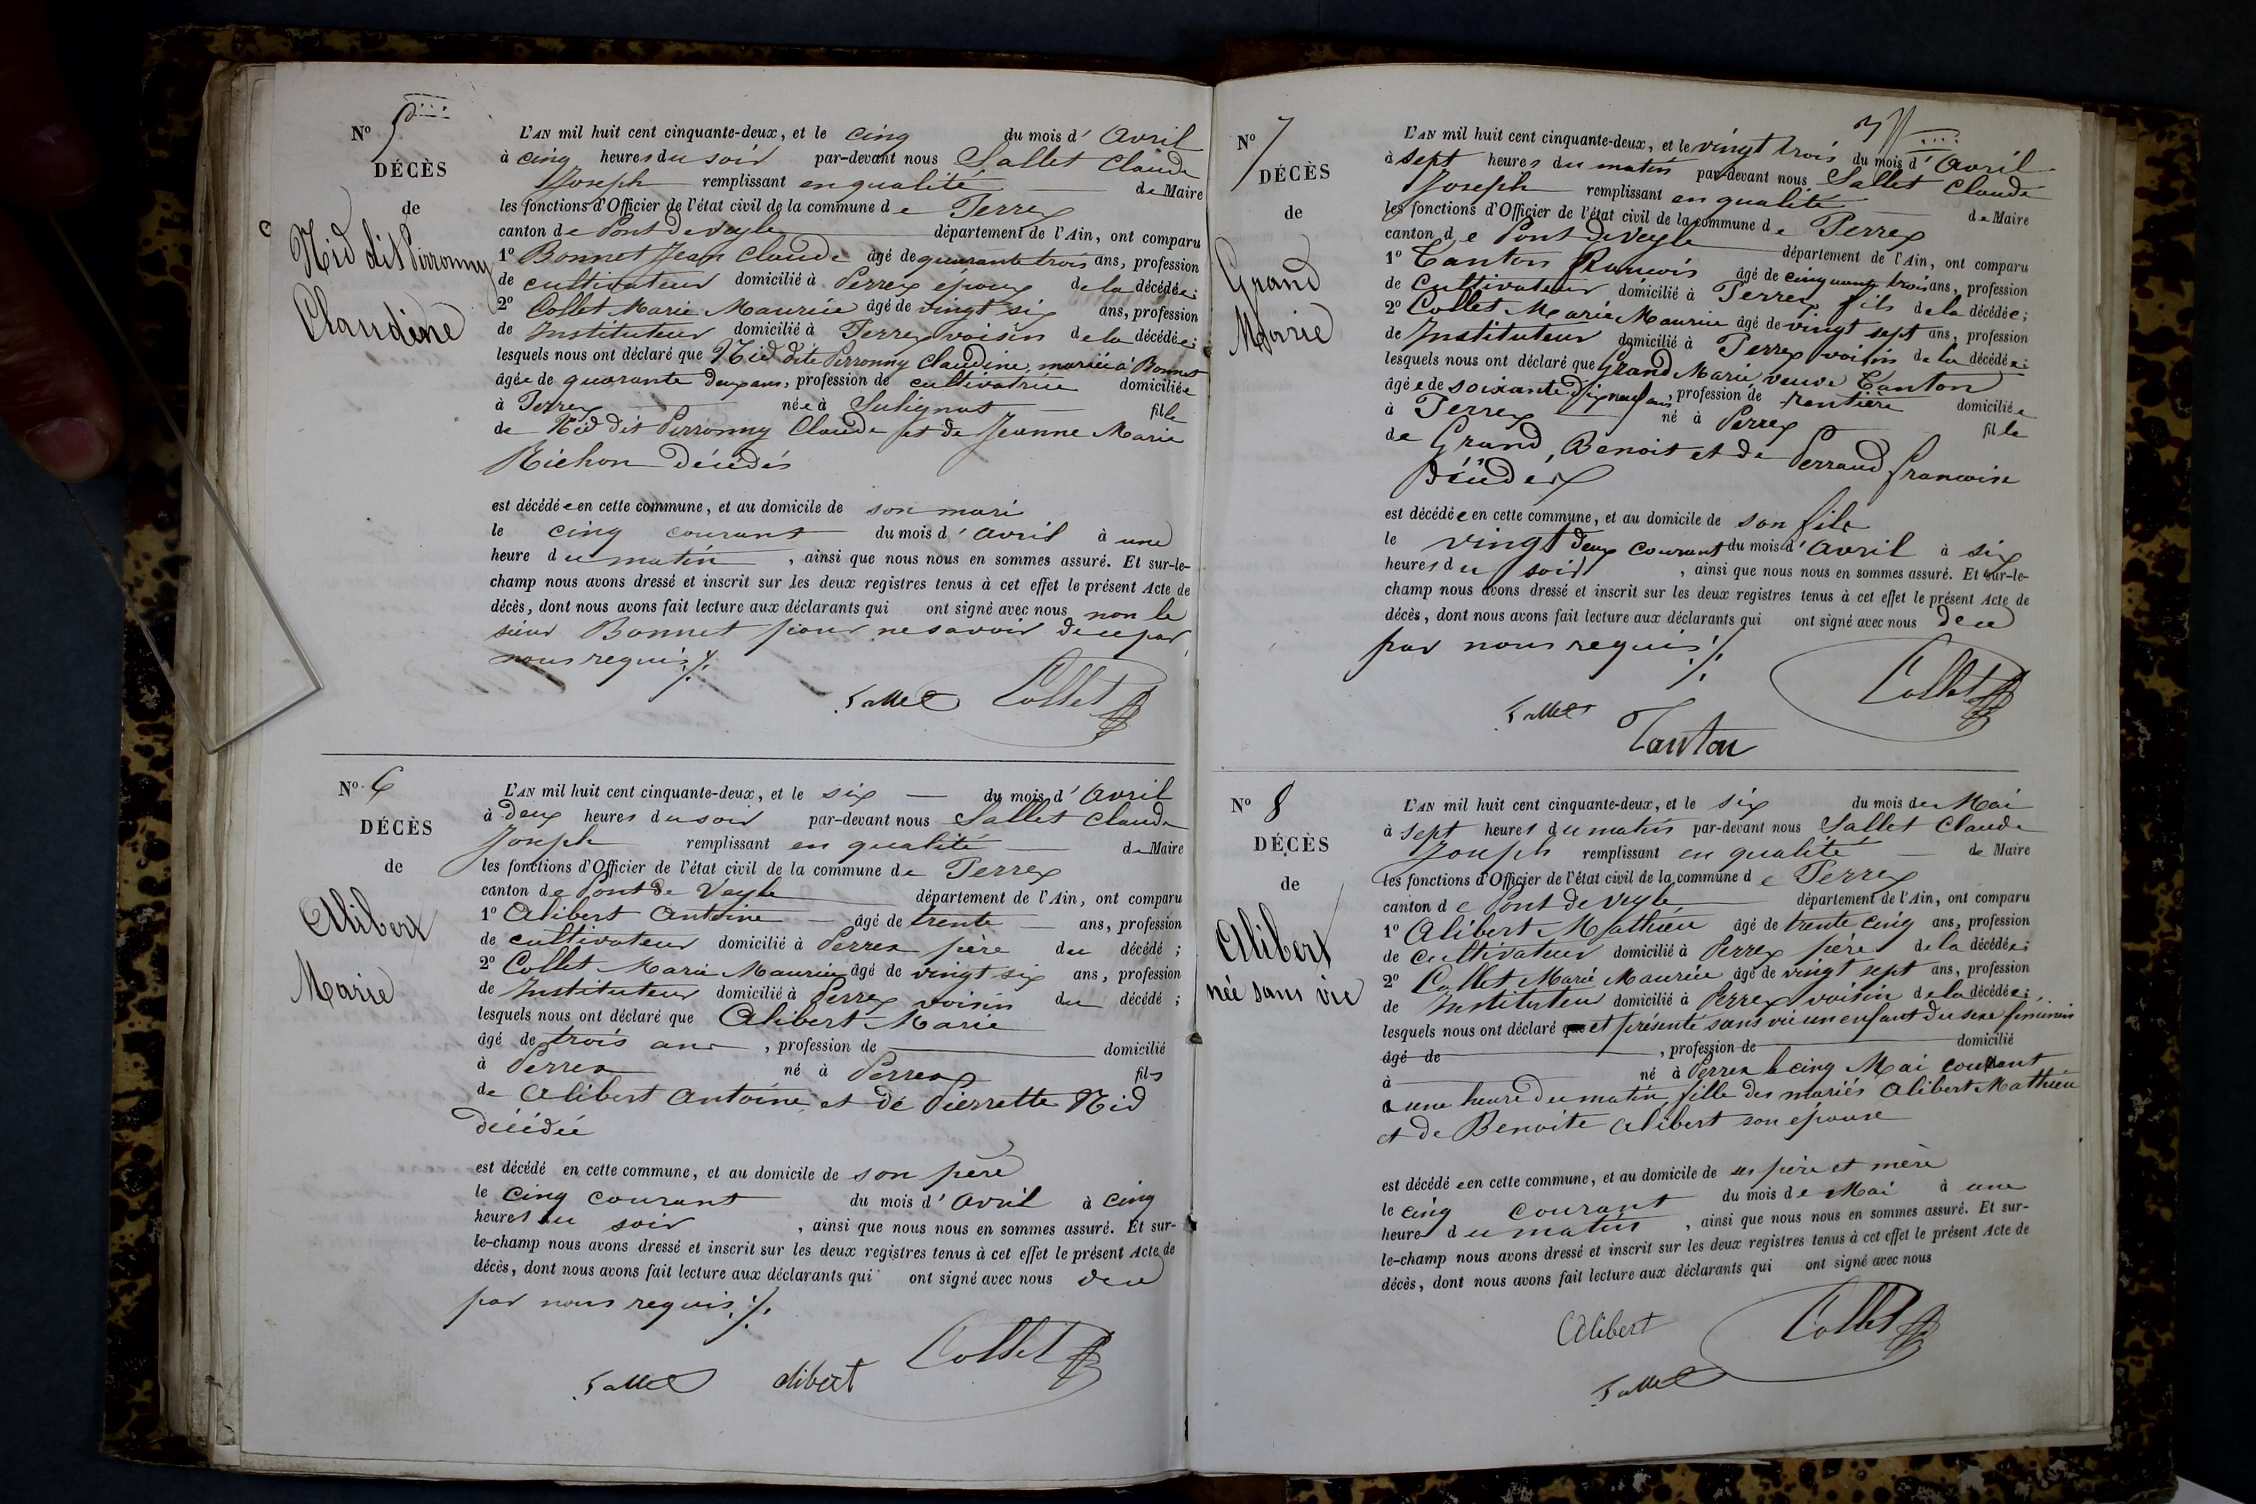 N° 5
DÉCÈS
de
Nid dit Perronny
Claudine
L'AN mil huit cent cinquante-deux, et le cinq du mois d'avril
à cinq heures du soir par-devant nous Sallet Claude
Joseph remplissant en qualité de Maire
les fonctions d'Officier de l'état civil de la commune de Perrex
canton de Pont de veyle département de l'Ain, ont comparu
1° Bonnet Jean Claude âgé de quarante trois ans, profession
de cultivateur domicilié à Perrex époux de la décédée;
2° Collet Marie Maurice âgé de vingt six ans, profession
de Instituteur domicilié à Perrex voisin de la décédée;
lesquels nous ont déclaré que Nid dite Perronny Claudine, mariée à Bonnet
âgée de quarante deux ans, profession de cultivatrice domiciliée
à Perrex née à Sulignat fille
de Nid dit Perronny Claude et de Jeanne Marie
Richon décédés
est décédée en cette commune, et au domicile de son mari
le cinq courant du mois d'avril à une
heure du matin, ainsi que nous nous en sommes assuré. Et sur-le-
champ nous avons dressé et inscrit sur les deux registres tenus à cet effet le présent Acte de
décès, dont nous avons fait lecture aux déclarants qui ont signé avec nous non le
sieur Bonnet pour ne savoir de ce par
nous requis ./.
Sallet Collet
N° 6
DÉCÈS
de
Alibert
Marie
L'AN mil huit cent cinquante-deux, et le six du mois d'avril
à deux heures du soir par-devant nous Sallet Claude
Joseph remplissant en qualité de Maire
les fonctions d'Officier de l'état civil de la commune de Perrex
canton de Pont de Veyle département de l'Ain, ont comparu
1° Alibert Antoine âgé de trente ans, profession
de cultivateur domicilié à Perrex père du décédé;
2° Collet Marie Maurice âgé de vingt six ans, profession
de Instituteur domicilié à Perrex voisin du décédé;
lesquels nous ont déclaré que Alibert Marie
âgé de trois ans, profession de domicilié
à Perrex né à Perrex fils
de Alibert Antoine et de Pierrette Nid
décédée
est décédé en cette commune, et au domicile de son père
le cinq courant du mois d'avril à cinq
heures du soir, ainsi que nous nous en sommes assuré. Et sur-
le-champ nous avons dressé et inscrit sur les deux registres tenus à cet effet le présent Acte de
décès, dont nous avons fait lecture aux déclarants qui ont signé avec nous de ce
par nous requis ./.
Sallet alibert Collet
N° 7
DÉCÈS
de
Grand
Marie
L'AN mil huit cent cinquante-deux, et le vingt trois du mois d'avril
à sept heures du matin par-devant nous Sallet Claude
Joseph remplissant en qualité de Maire
les fonctions d'Officier de l'état civil de la commune de Perrex
canton de Pont de Veyle département de l'Ain, ont comparu
1° Tanton François âgé de cinquante trois ans, profession
de cultivateur domicilié à Perrex fils de la décédée;
2° Collet Marie Maurice âgé de vingt sept ans, profession
de Instituteur domicilié à Perrex voisin de la décédée;
lesquels nous ont déclaré que Grand Marie, veuve Tanton
âgée de soixante dix neuf ans, profession de rentière domiciliée
à Perrex né à Perrex fille
de Grand, Benoit et de Perraud françoise
décédés
est décédée en cette commune, et au domicile de son fils
le vingt deux courant du mois d'avril à six
heures du soir, ainsi que nous nous en sommes assuré. Et sur-le-
champ nous avons dressé et inscrit sur les deux registres tenus à cet effet le présent Acte de
décès, dont nous avons fait lecture aux déclarants qui ont signé avec nous de ce
par nous requis ./.
Sallet Collet
Tanton
N° 8
DÉCÈS
de
Alibert
née sans vie
L'AN mil huit cent cinquante-deux, et le six du mois de Mai
à sept heures du matin par-devant nous Sallet Claude
Joseph remplissant en qualité de Maire
les fonctions d'Officier de l'état civil de la commune de Perrex
canton de Pont de veyle département de l'Ain, ont comparu
1° Alibert Mathieu âgé de trente cinq ans, profession
de cultivateur domicilié à Perrex père de la décédée;
2° Collet Marie Maurice âgé de vingt sept ans, profession
de Instituteur domicilié à Perrex voisin de la décédée;
lesquels nous ont déclaré que et présenté sans vie un enfant du sexe féminin
âgé de , profession de domicilié
à né à Perrex le cinq Mai courant
à une heure du matin, fille des mariés Alibert Mathieu
et de Benoite Alibert son épouse
est décédée en cette commune, et au domicile de ses père et mère
le cinq courant du mois de Mai à une
heure du matin, ainsi que nous nous en sommes assuré. Et sur-
le-champ nous avons dressé et inscrit sur les deux registres tenus à cet effet le présent Acte de
décès, dont nous avons fait lecture aux déclarants qui ont signé avec nous
Alibert Collet
Sallet